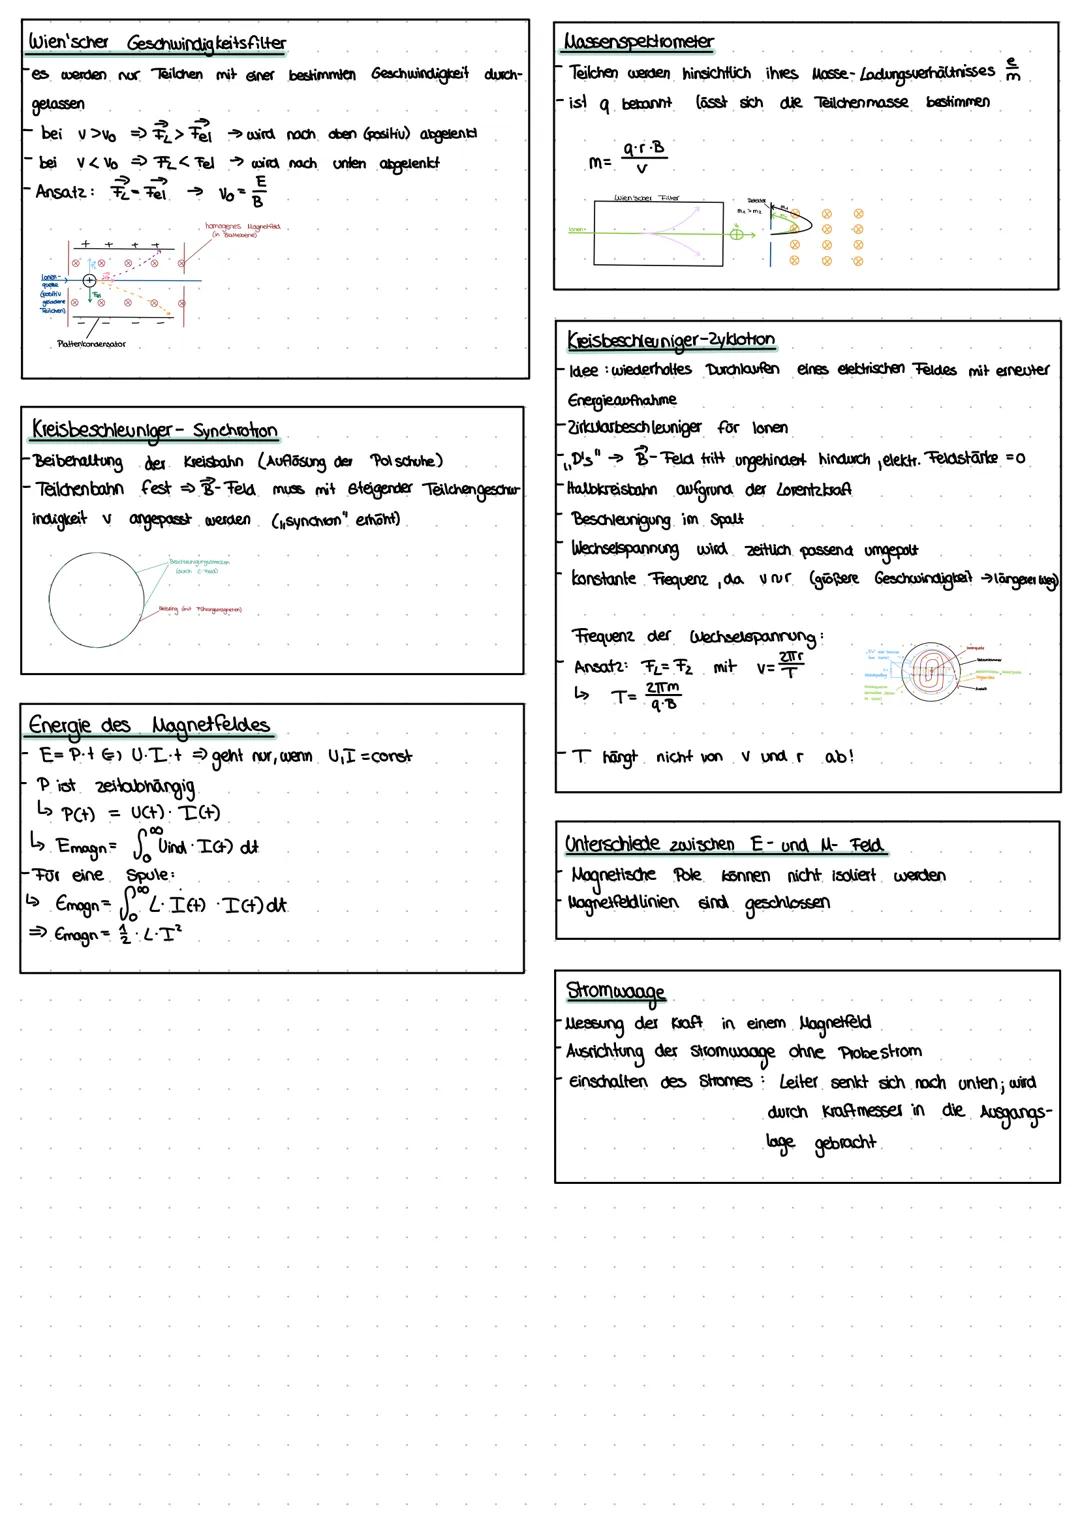 Wien'scher Geschwindigkeitsfilter
- es werden nur Teilchen mit einer bestimmten Geschwindigkeit durch-
gelassen
- bei v > v₀ ⇒ F⃗_L > F⃗_el → wird nach oben (positiv) abgelenkt
- bei v < v₀ ⇒ F_L < F_el → wird nach unten abgelenkt
- Ansatz: F⃗_L = F⃗_el → v₀ = E/B
homogenes Magnetfeld
(in Blattebene)
Ionen-
quelle
(positiv
geladene
Teilchen)
F_el
Plattenkondensator
Kreisbeschleuniger - Synchrotron
- Beibehaltung der Kreisbahn (Auflösung der Polschuhe)
- Teilchenbahn fest ⇒ B⃗-Feld muss mit steigender Teilchengeschw
indigkeit v angepasst werden („synchron" erhöht)
Beschleunigungsstrecken
(durch E-Feld)
Beamring (mit Führungsmagneten)
Energie des Magnetfeldes
- E = P·t ⇔ U·I·t ⇒ geht nur, wenn U, I = const
- P ist zeitabhängig
↳ P(t) = U(t) · I(t)
↳ Emagn = ∫₀^∞ Uind · I(t) dt
- Für eine Spule:
↳ Emagn = ∫₀^∞ L · İ(t) · I(t) dt
⇒ Emagn = 1/2 · L · I²
Massenspektrometer
- Teilchen werden hinsichtlich ihres Masse-Ladungsverhältnisses e/m
- ist q bekannt lässt sich die Teilchenmasse bestimmen
m = q·r·B/v
Wien'scher Filter
Ionen
Detektor
m₁ > m₂
m₁
m₂
Kreisbeschleuniger - Zyklotron
- Idee: wiederholtes Durchlaufen eines elektrischen Feldes mit erneuter
Energieaufnahme
- Zirkularbeschleuniger für Ionen
- „D's" → B⃗-Feld tritt ungehindert hindurch, elektr. Feldstärke = 0
- Halbkreisbahn aufgrund der Lorentzkraft
- Beschleunigung im Spalt
- Wechselspannung wird zeitlich passend umgepolt
- konstante Frequenz, da v~r (größere Geschwindigkeit → längerer Weg)
Frequenz der Wechselspannung:
- Ansatz: F_L = F_Z mit v = 2πr/T
↳ T = 2πm/q·B
- T hängt nicht von v und r ab!
Unterschiede zwischen E- und M- Feld
- Magnetische Pole können nicht isoliert werden
- Magnetfeldlinien sind geschlossen
Stromwaage
- Messung der Kraft in einem Magnetfeld
- Ausrichtung der Stromwaage ohne Probestrom
- Einschalten des Stromes: Leiter senkt sich nach unten; wird
durch Kraftmesser in die Ausgangs-
lage gebracht